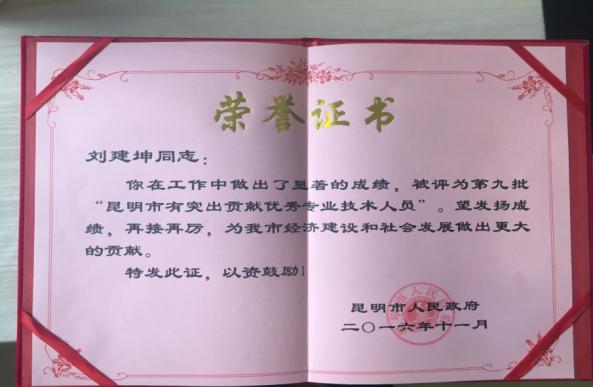 荣誉证书
刘建坤同志：
你在工作中做出了显著的成绩，被评为第九批
“昆明市有突出贡献优秀专业技术人员”。望发扬成
绩，再接再厉，为我市经济建设和社会发展做出更大
的贡献。
特发此证，以资鼓励！
昆明市人民政府
二〇一六年十一月